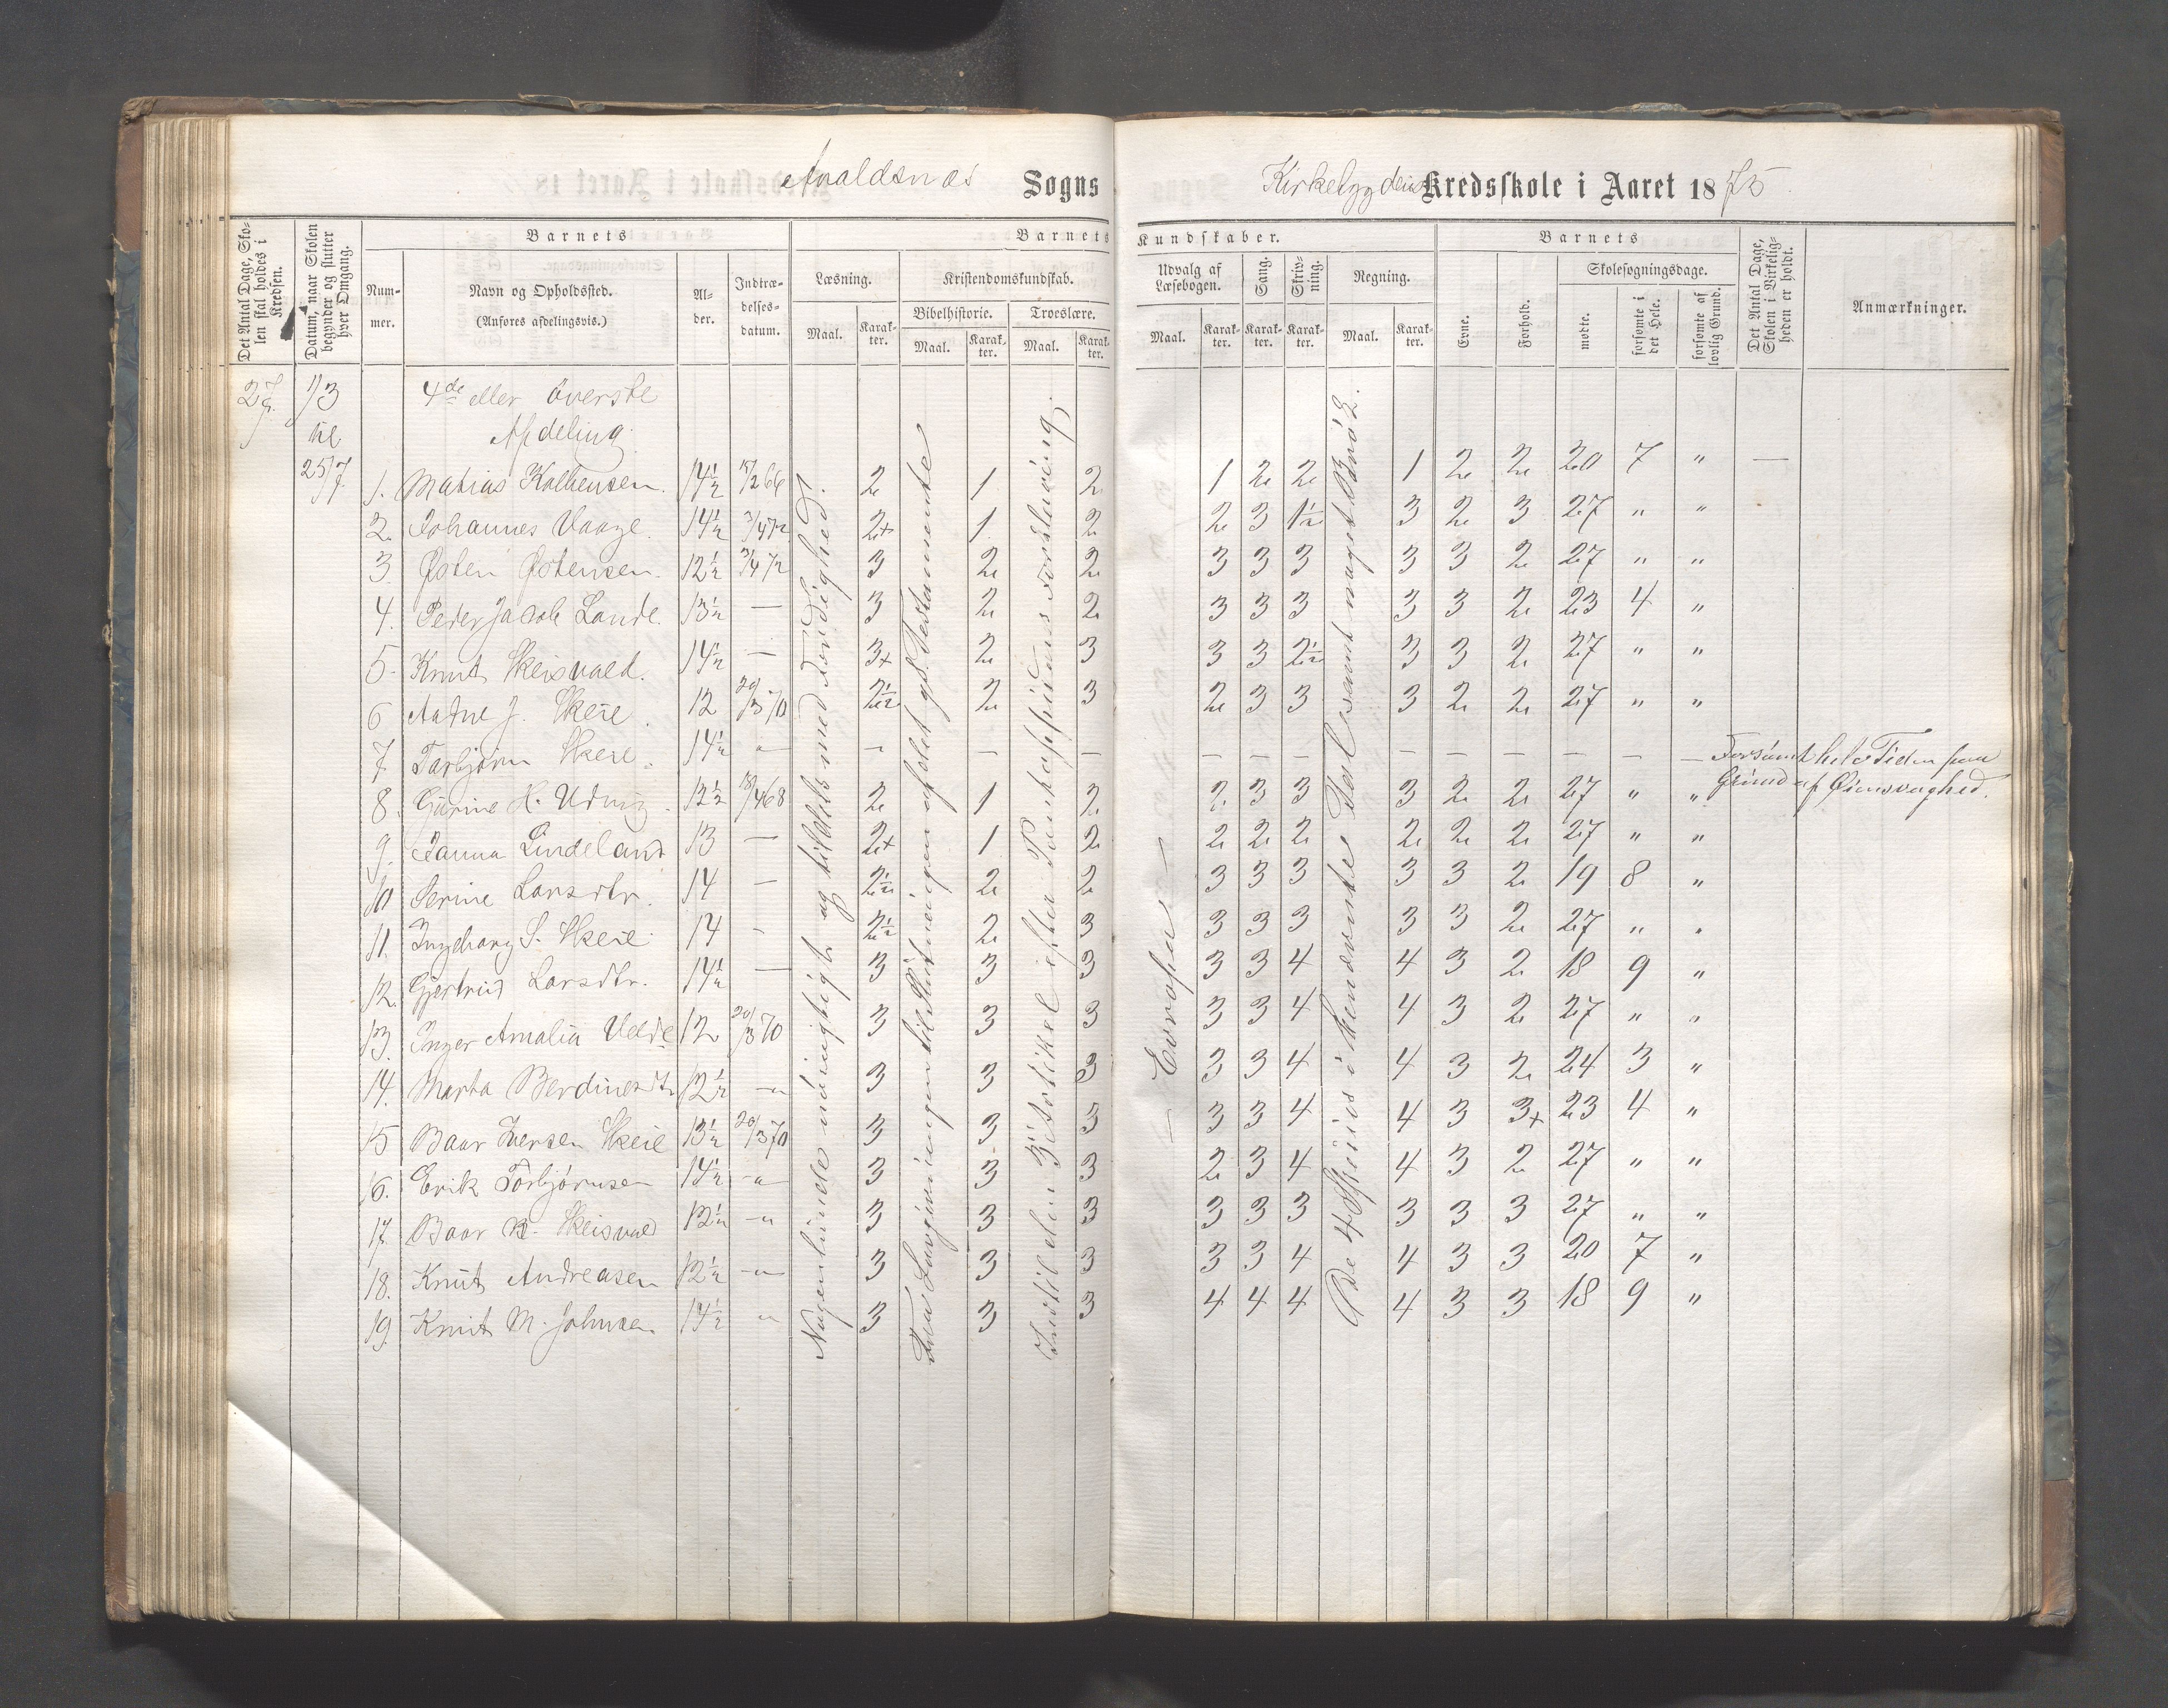 Avaldsnæs Sogns Kirkebygdens Kredsskole i Aaret 1875.
Det Antal Dage, Sko-
len skal holdes i
Kredsen.
Datum, naar Skolen
begynder og slutter
hver Omgang.
Barnets
Num-
mer.
Navn og Opholdssted.
(Anføres afdelingsvis.)
Al-
der.
Indtræ-
delses-
datum.
Barnets Kundskaber.
Læsning.
Maal. Karak-
ter.
Kristendomskundskab.
Bibelhistorie.
Maal. Karak-
ter.
Troeslære.
Maal. Karak-
ter.
Udvalg af
Læsebogen.
Maal. Karak-
ter.
Sang.
Karak-
ter.
Skriv-
ning.
Karak-
ter.
Regning.
Maal. Karak-
ter.
Barnets
Evne.
Forhold.
Skolesøgningsdage.
mødte.
forsømte i
det Hele.
forsømte af
lovlig Grund.
Det Antal Dage,
Skolen i Virkelig-
heden er holdt.
Anmærkninger.
27. 1/3
til
25/7
4de eller øverste
Afdeling.
1. Matias Kolbensen. 14½ 15/2 66 2 1 2 1 2 2 1 2 2 20 7 " —
2. Johannes Vaage. 14½ 3/4 72 2+ 1 2 2 3 1½ 3 2 3 27 " "
3. Østen Østensen. 12½ 3/4 72 3 2 2 3 3 3 3 3 2 27 " "
4. Peder Jacob Lande. 13½ — 3 2 2 3 3 3 3 3 2 23 4 "
5. Knut Skeisvold. 14½ — 3+ 2 3 3 3 2½ 3 3 2 27 " "
6 Aadne J. Skeie. 12 20/3 70 2½ 2 3 2 3 3 3 2 2 27 " "
7 Torbjørn Skeie. 14½ — — — — — — — — — — — — — Forsømt hele Tiden paa
Grund af Øiensvaghed.
8. Gurine H. Utvig. 12½ 18/4 68 2 1 2 2 3 3 3 2 2 27 " "
9. Janna Lindeland 13 — 2+ 1 2 2 2 2 2 2 2 27 " "
10 Serine Larsdtr. 14 — 2½ 2 2 3 3 3 3 3 2 19 8 "
11. Ingeborg S. Skeie 14 - 2½ 2 3 3 3 3 3 3 2 27 " "
12. Gjertrud Larsdtr. 14½ — 3 3 3 3 3 4 4 3 2 18 9 "
13. Inger Amalia Velde 12 20/3 70 3 3 3 3 3 4 4 3 2 27 " "
14. Marta Berdinesdtr 12½ -"- 3 3 3 3 3 4 4 3 2 24 3 "
15 Baar Iversen Skeie 13½ 20/3 70 3 3 3 3 3 4 4 3 3+ 23 4 "
16. Erik Torbjørnsen 14½ -"- 3 3 3 2 3 4 4 3 2 27 " "
17. Baar B. Skeisvold 12½ -"- 3 3 3 3 3 3 3 3 3 27 " "
18. Knut Andreasen 12½ -"- 3 3 3 3 3 4 4 3 3 20 7 "
19. Knut M. Johnsen 14½ " 3 3 3 4 4 4 4 3 3 18 9 "
Nogenlunde nøiagtigt og tildels med Færdighed.
Fra Lovgivningen til Slutningen af det gl. Testamente
Indtil den 3die Artikel efter Pontoppidans Forklaring.
— Evropa —
De 4 Species i benævnte Tal samt noget Brøk.